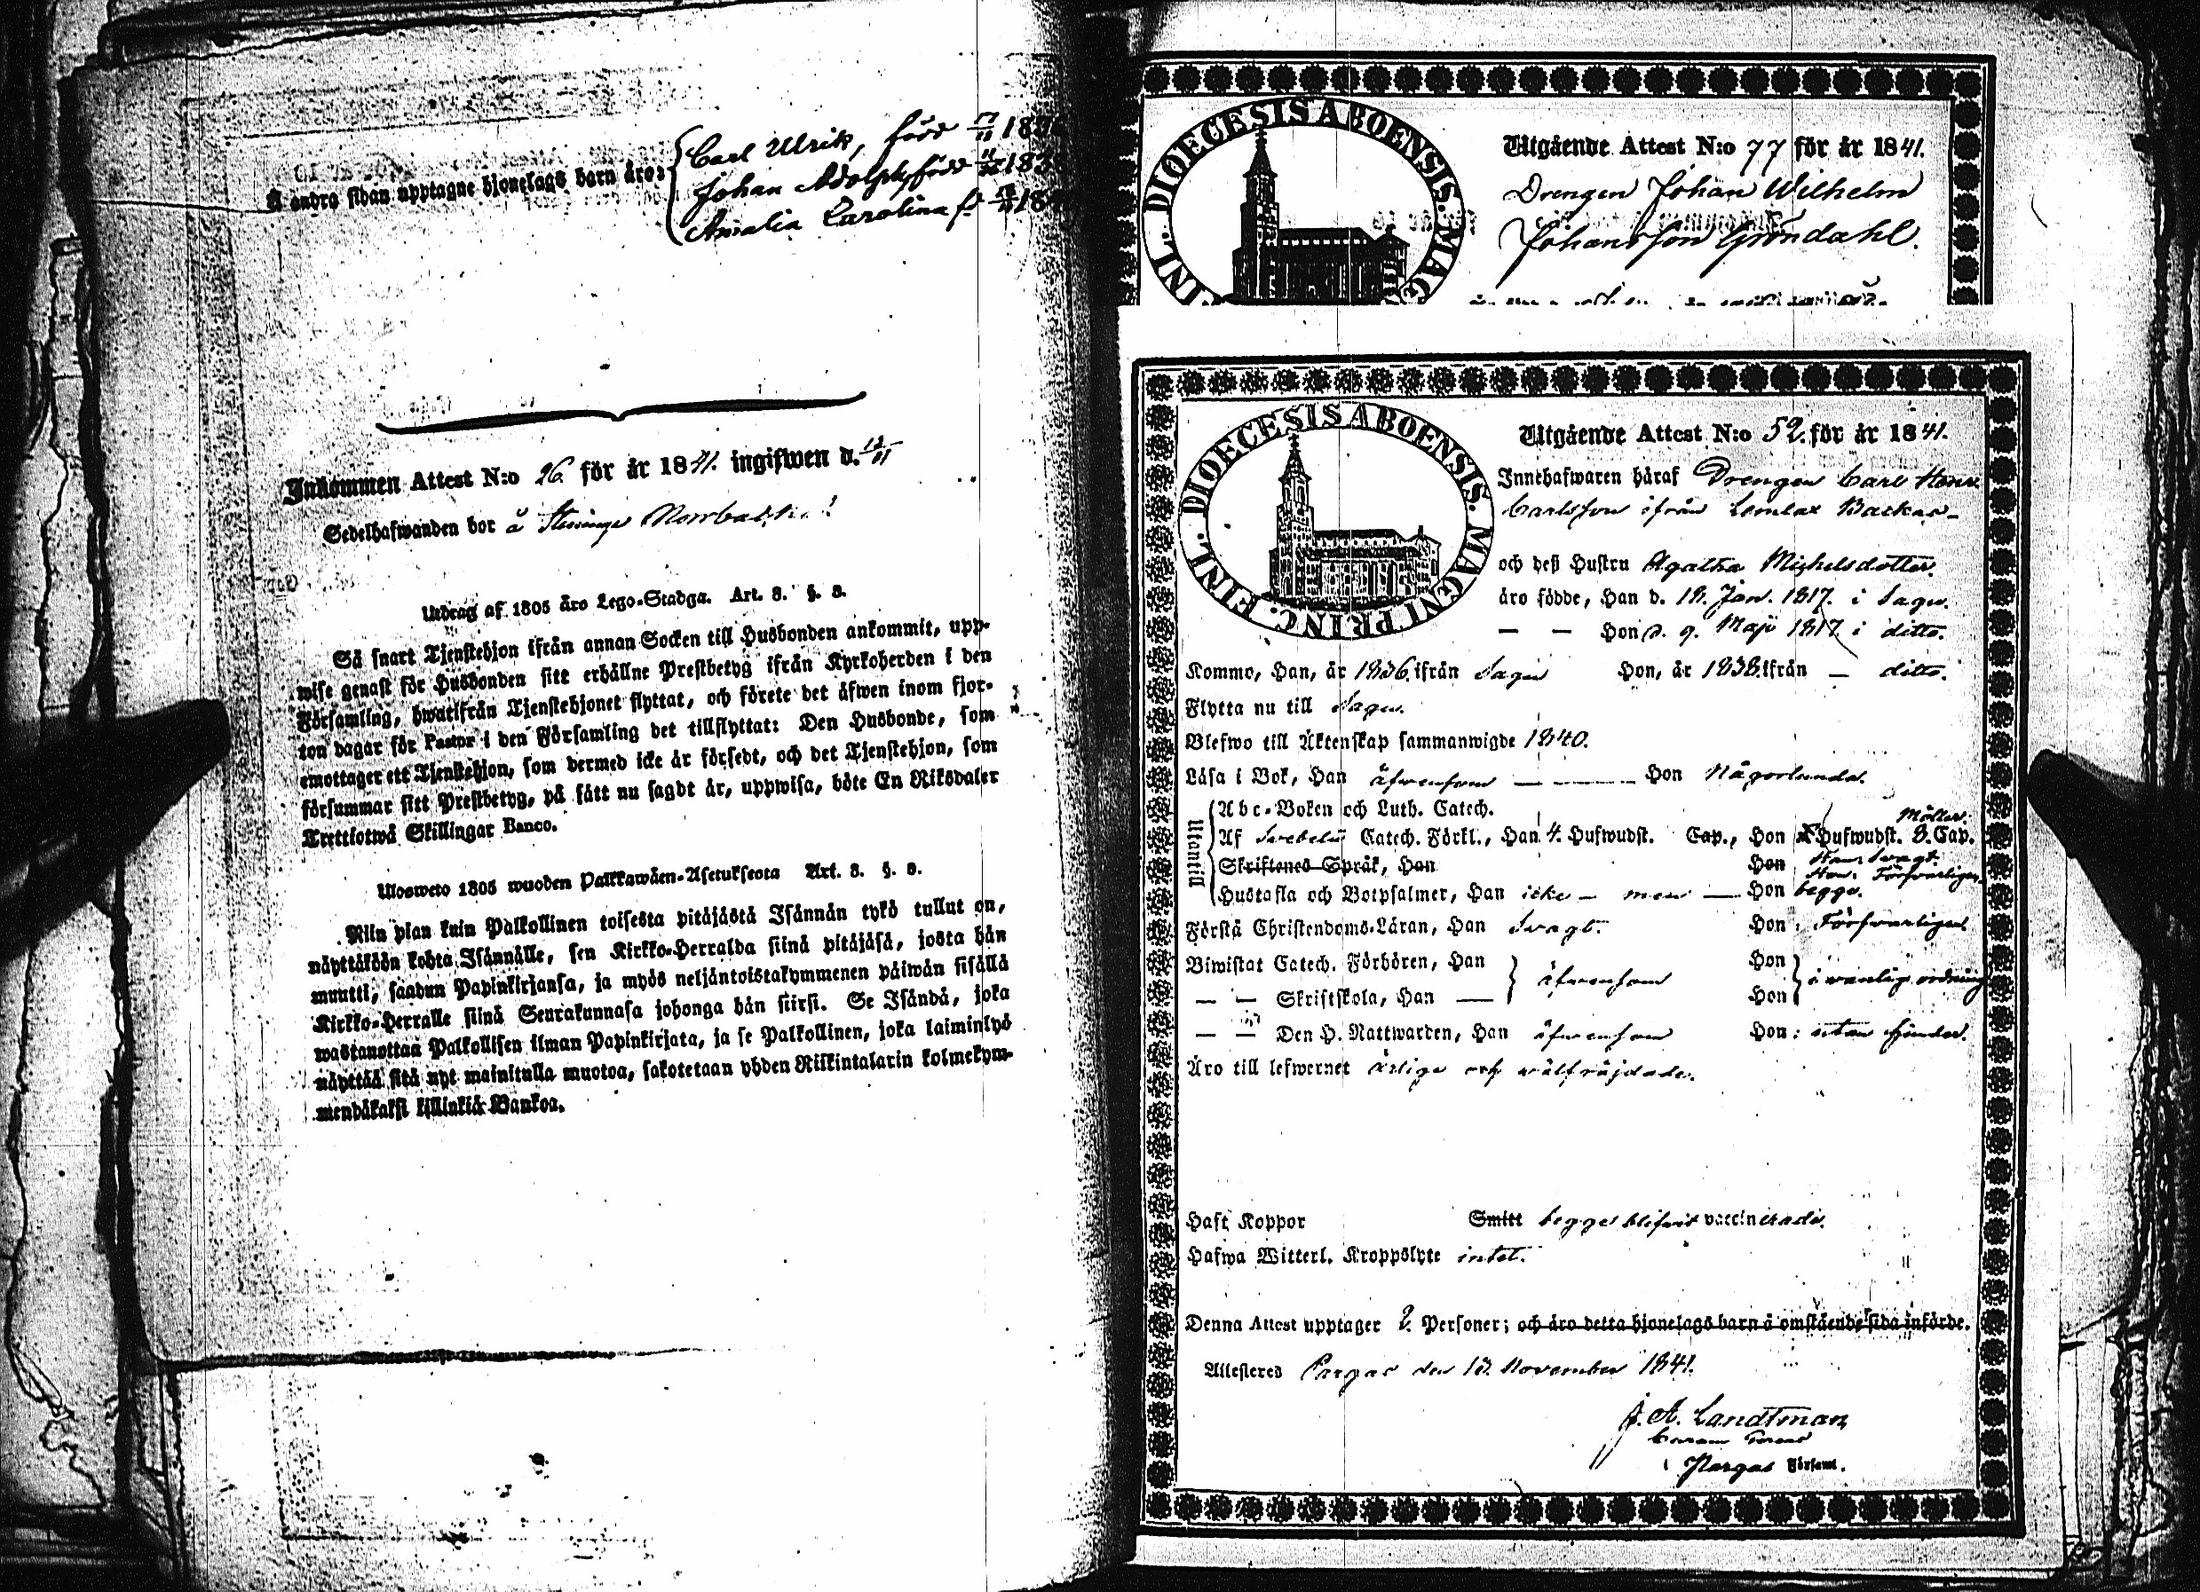 Å andra sidan upptagne hjonelags barn äro:
Carl Ulrik, född
Johan Adolph, född
Amalia Carolina f.
Inkommen Attest N:o 26 för år 1841. ingifwen d.
Sedelhafwanden bor å
Utdrag af 1805 års Lego-Stadga. Art. 8. §. 8.
Så snart Tjenstehjon ifrån annan Socken till Husbonden ankommit, upp-
wise genast för Husbonden sitt erhållne Prestbetyg ifrån Kyrkoherden i den
Församling, hwarifrån Tjenstehjonet flyttat, och förete det äfwen inom fjor-
ton dagar för Pastor i den Församling det tillflyttat: Den Husbonde, som
emottager ett Tjenstehjon, som dermed icke är försedt, och det Tjenstehjon, som
försummar sitt Prestbetyg, på sätt nu sagdt är, uppwisa, böte En Riksdaler
Trettiotwå Skillingar Banco.
Ulosweto 1805 wuoden Palkkawäen-Asetuksesta Art. 8. §. 8.
Niin pian kuin Palkollinen toisesta pitäjästä Isännän tykö tullut on,
näyttäköön kohta Isännälle, sen Kirkko-Herralda siinä pitäjäsä, josta hän
muutti, saadun Papinkirjansa, ja myös neljäntoistakymmenen päiwän sisällä
Kirkko-Herralle siinä Seurakunnasa johonga hän siirsi. Se Isändä, joka
wastanottaa Palkollisen ilman Papinkirjata, ja se Palkollinen, joka laiminlyö
näyttää sitä nyt mainitulla muotoa, sakotetaan yhden Riikintalarin kolmekym-
mendäkaksi killinkiä Bankoa.
DIOECESIS ABOENSIS. MAG
INL.
Utgående Attest N:o 77 för år 1841.
Drengen Johan Wilhelm
Johansson Gröndahl.
DIOECESIS ABOENSIS. MAGNI PRINC. FINL.
Utgående Attest N:o 52. för år 1841.
Innehafwaren häraf Drengen Carl Henr.
Carlsson ifrån Lemlax Backas-
och deß Hustru Agatha Michelsdotter.
äro födde, Han d. 18. Jan. 1817. i Sagu.
— — Hon d. 9. Maji 1817. i ditto.
Kommo, Han, år 1836. ifrån Sagu Hon, år 1838. ifrån — ditto.
Flytta nu till Sagu.
Blefwo till Äktenskap sammanwigde 1840.
Läsa i Bok, Han äfwensom — — Hon Någorlunda.
Utantill
Abc-Boken och Luth. Catech.
Af Svebelii Catech. Förkl., Han 4. Hufwudst. Cap., Hon Hufwudst. 8. Cap.
Möller.
Skriftenes Språk, Han Hon
Han: Svagt.
Hon: Förswarligen.
Hustafla och Botpsalmer, Han icke — men — Hon begge.
Förstå Christendoms-Läran, Han Svagt. Hon: Förswarligen
Biwistat Catech. Förhören, Han äfwensom Hon i wanlig ordning
— — Skriftskola, Han — Hon
— — Den H. Nattwarden, Han äfwensom Hon: utan hinder.
Äro till lefwernet ärlige och wälfräjdade.
Haft Koppor Smitt begge blifwit vaccinerade.
Hafwa Witterl. Kroppslyte intet.
Denna Attest upptager 2. Personer; och äro detta hjonelags barn å omstående sida införde.
Attesteres Pargas den 13. November 1841.
J. A. Landtman
Pargas Församl.